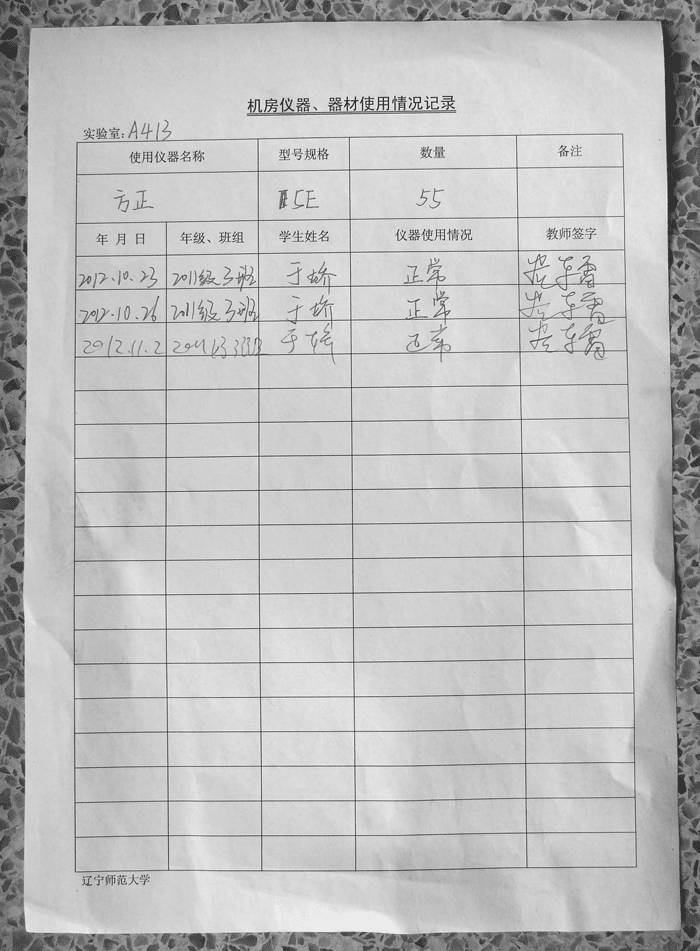 机房仪器、器材使用情况记录
实验室:A413
使用仪器名称 型号规格 数量 备注
方正 5E 55
年 月 日 年级、班组 学生姓名 仪器使用情况 教师签字
2012.10.23 2011级3班 于娇 正常
2012.10.26 2011级3班 于娇 正常
2012.11.2 2011级3班 于娇 正常
辽宁师范大学